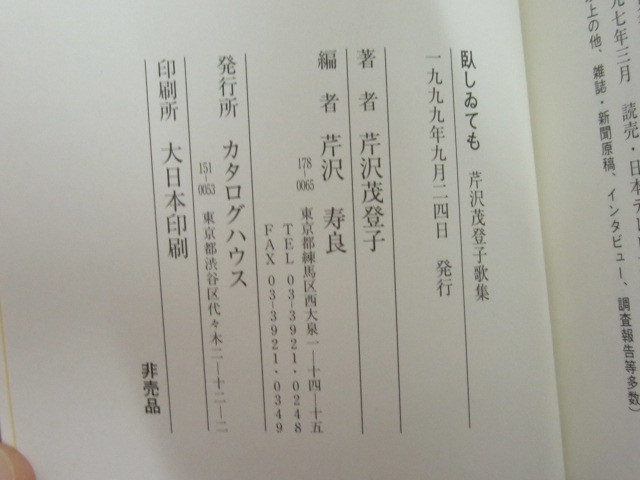 九七年三月 読売・日本テレ
上の他、雑誌・新聞原稿、インタビュー、調査報告等多数)
臥しゐても 芹沢茂登子歌集
一九九九年九月二四日 発行
著者 芹沢茂登子
編者 芹沢 寿良
178-0065 東京都練馬区西大泉一―十四―十五
TEL 03-3921・0248
FAX 03-3921・0349
発行所 カタログハウス
151-0053 東京都渋谷区代々木二―十二―二
印刷所 大日本印刷
非売品